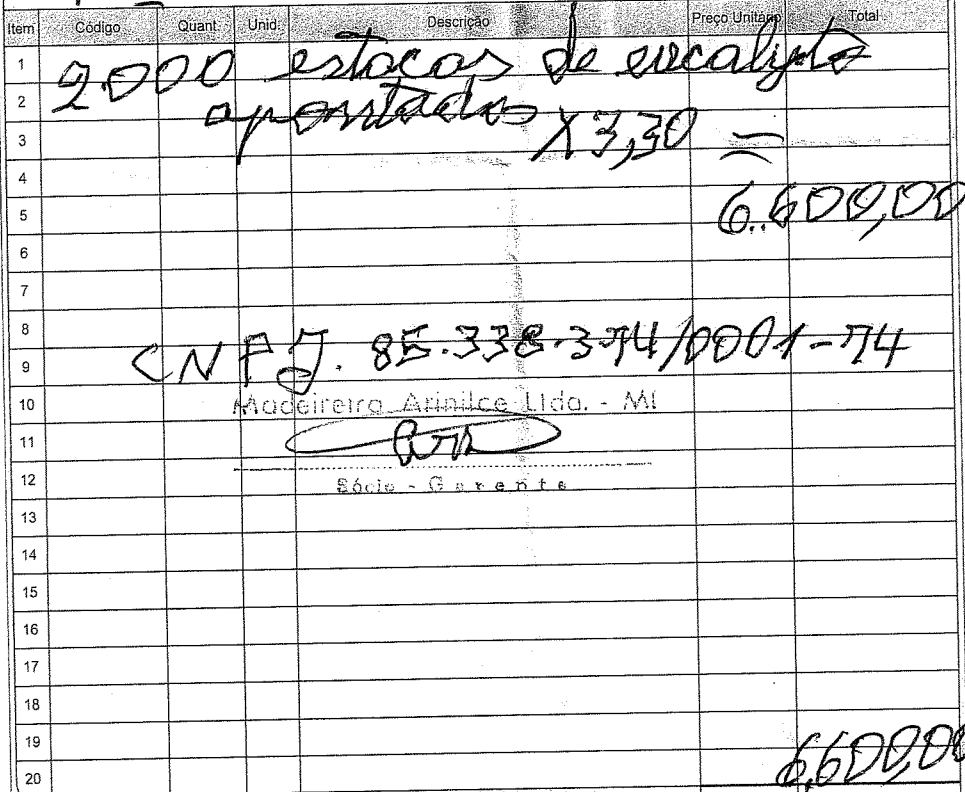 Item Código Quant. Unid. Descrição Preço Unitário Total
1
2.000 estacas de eucalipto
2
apontadas
3
X 3,30 =
4
5
6.600,00
6
7
8
9
CNPJ. 85.338.374/0001-74
10
Madeireira Arinilce Ltda. - MI
11
12
Sócio - Gerente
13
14
15
16
17
18
19
20
6.600,00